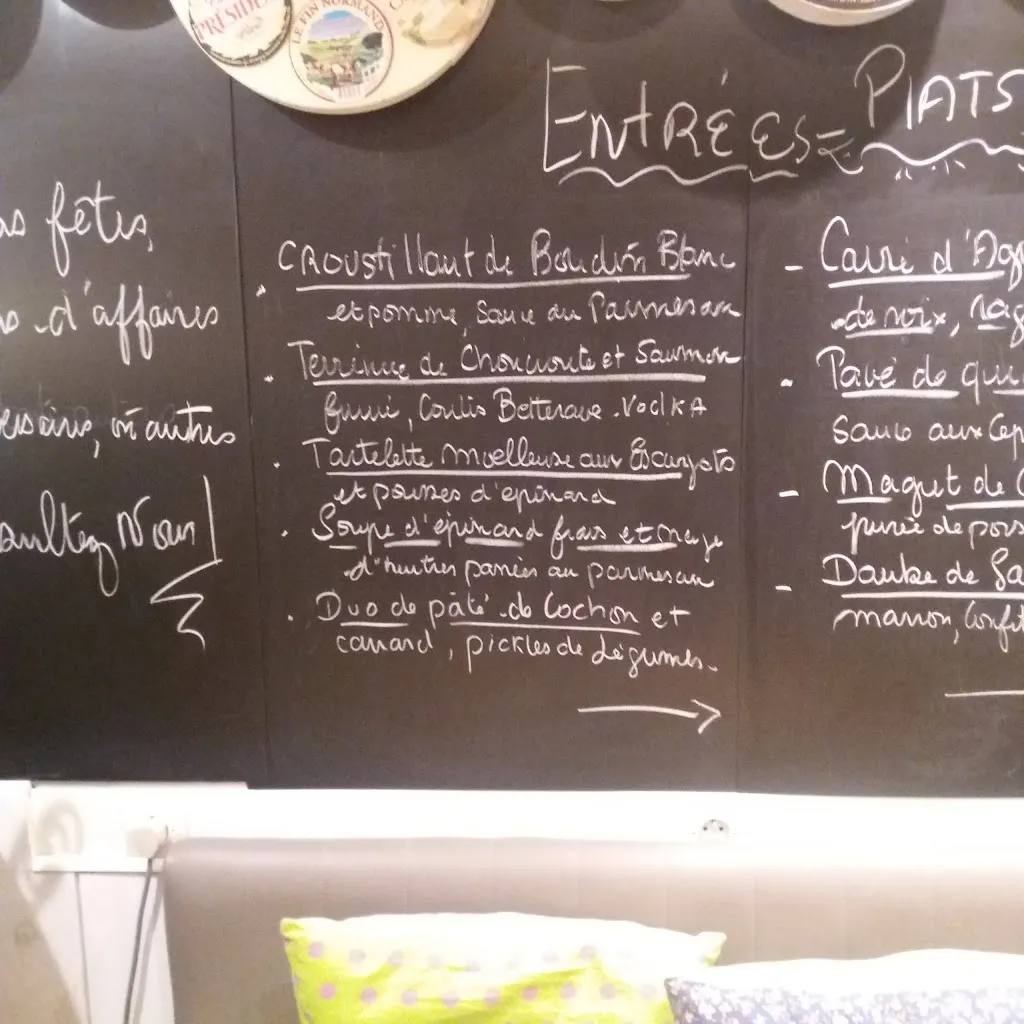 PRÉSIDENT
LE FIN NORMAND
ENTRÉES = PLATS
fêtes,
d'affaires
autres
Nous!
CROUSTILLANT de Boudin Blanc
et pomme, Sauce au Parmesan
Terrinne de Choucroute et Saumon
fumé, Coulis Betterave . VodKA
Tartelette moelleuse aux Escargots
et pousses d'épinard
Soupe d'épinard frais et
d'huitres panées au parmesan
Duo de pâté de Cochon et
canard, pickles de Légumes.
- Carré d'Ag
de noix,
- Pavé de
Sauce aux Cep
- Magret de
purée de pois
- Daube de
marron, Confit